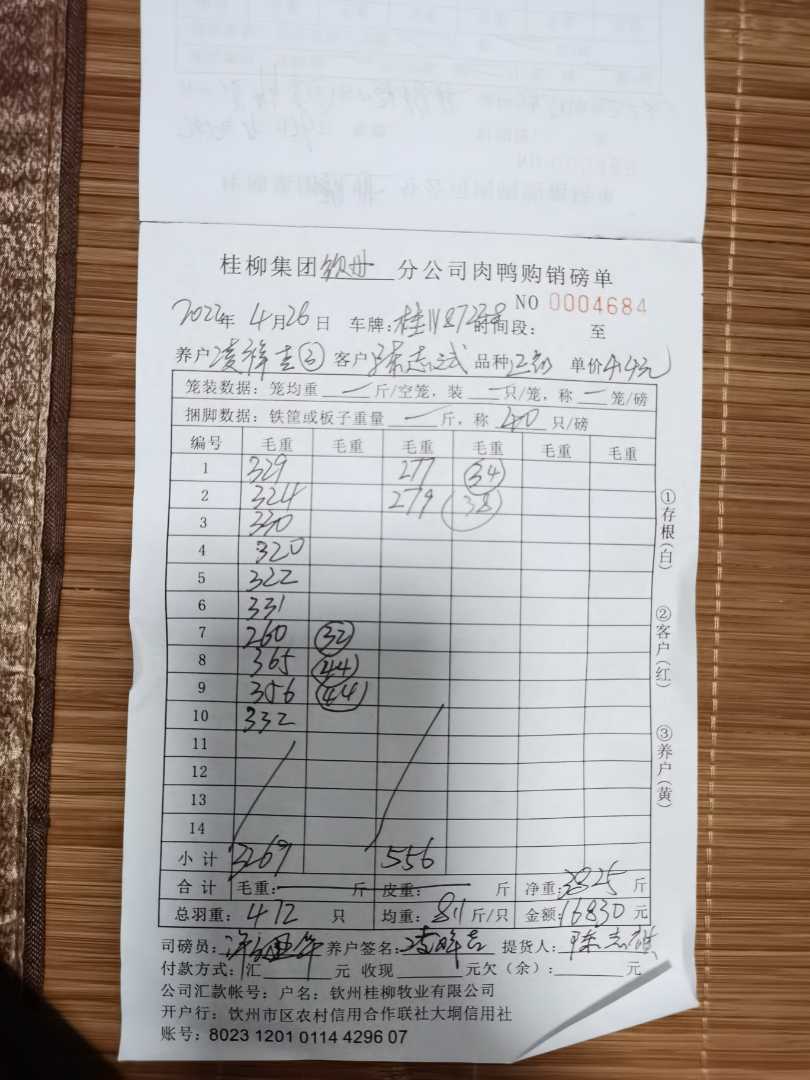 桂柳集团钦州分公司肉鸭购销磅单
NO 0004684
2022年4月26日 车牌:桂 时间段: 至
养户凌祥吉③客户陈志武 品种 单价4.4元
笼装数据: 笼均重 — 斤/空笼, 装 — 只/笼, 称 — 笼/磅
捆脚数据: 铁筐或板子重量 — 斤, 称 40 只/磅
编号 毛重 毛重 毛重 毛重 毛重 毛重
1 329 277 34
2 324 279 38
3 330
4 320
5 322
6 331
7 260 32
8 365 44
9 356 44
10 332
11
12
13
14
小计 3269 556
合计 毛重: 斤 皮重: 斤 净重: 3825 斤
总羽重: 472 只 均重: 8.11斤/只 金额: 16830元
司磅员: 养户签名: 凌祥吉 提货人: 陈志
付款方式: 汇 元 收现 元欠(余): 元
公司汇款帐号: 户名: 钦州桂柳牧业有限公司
开户行: 钦州市区农村信用合作联社大垌信用社
账号: 8023 1201 0114 4296 07
①存根(白)
②客户(红)
③养户(黄)